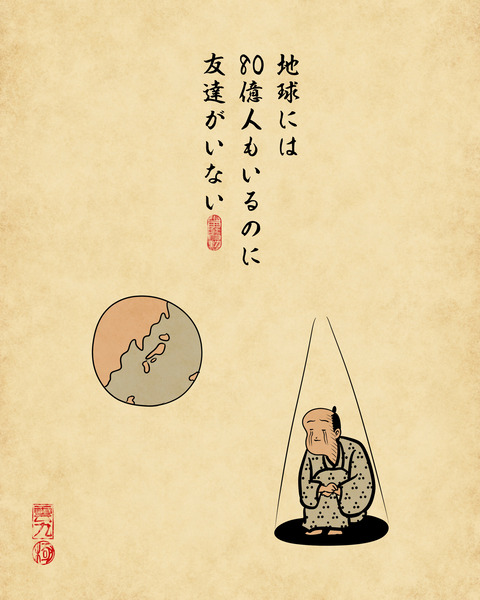 地球には
80億人もいるのに
友達がいない